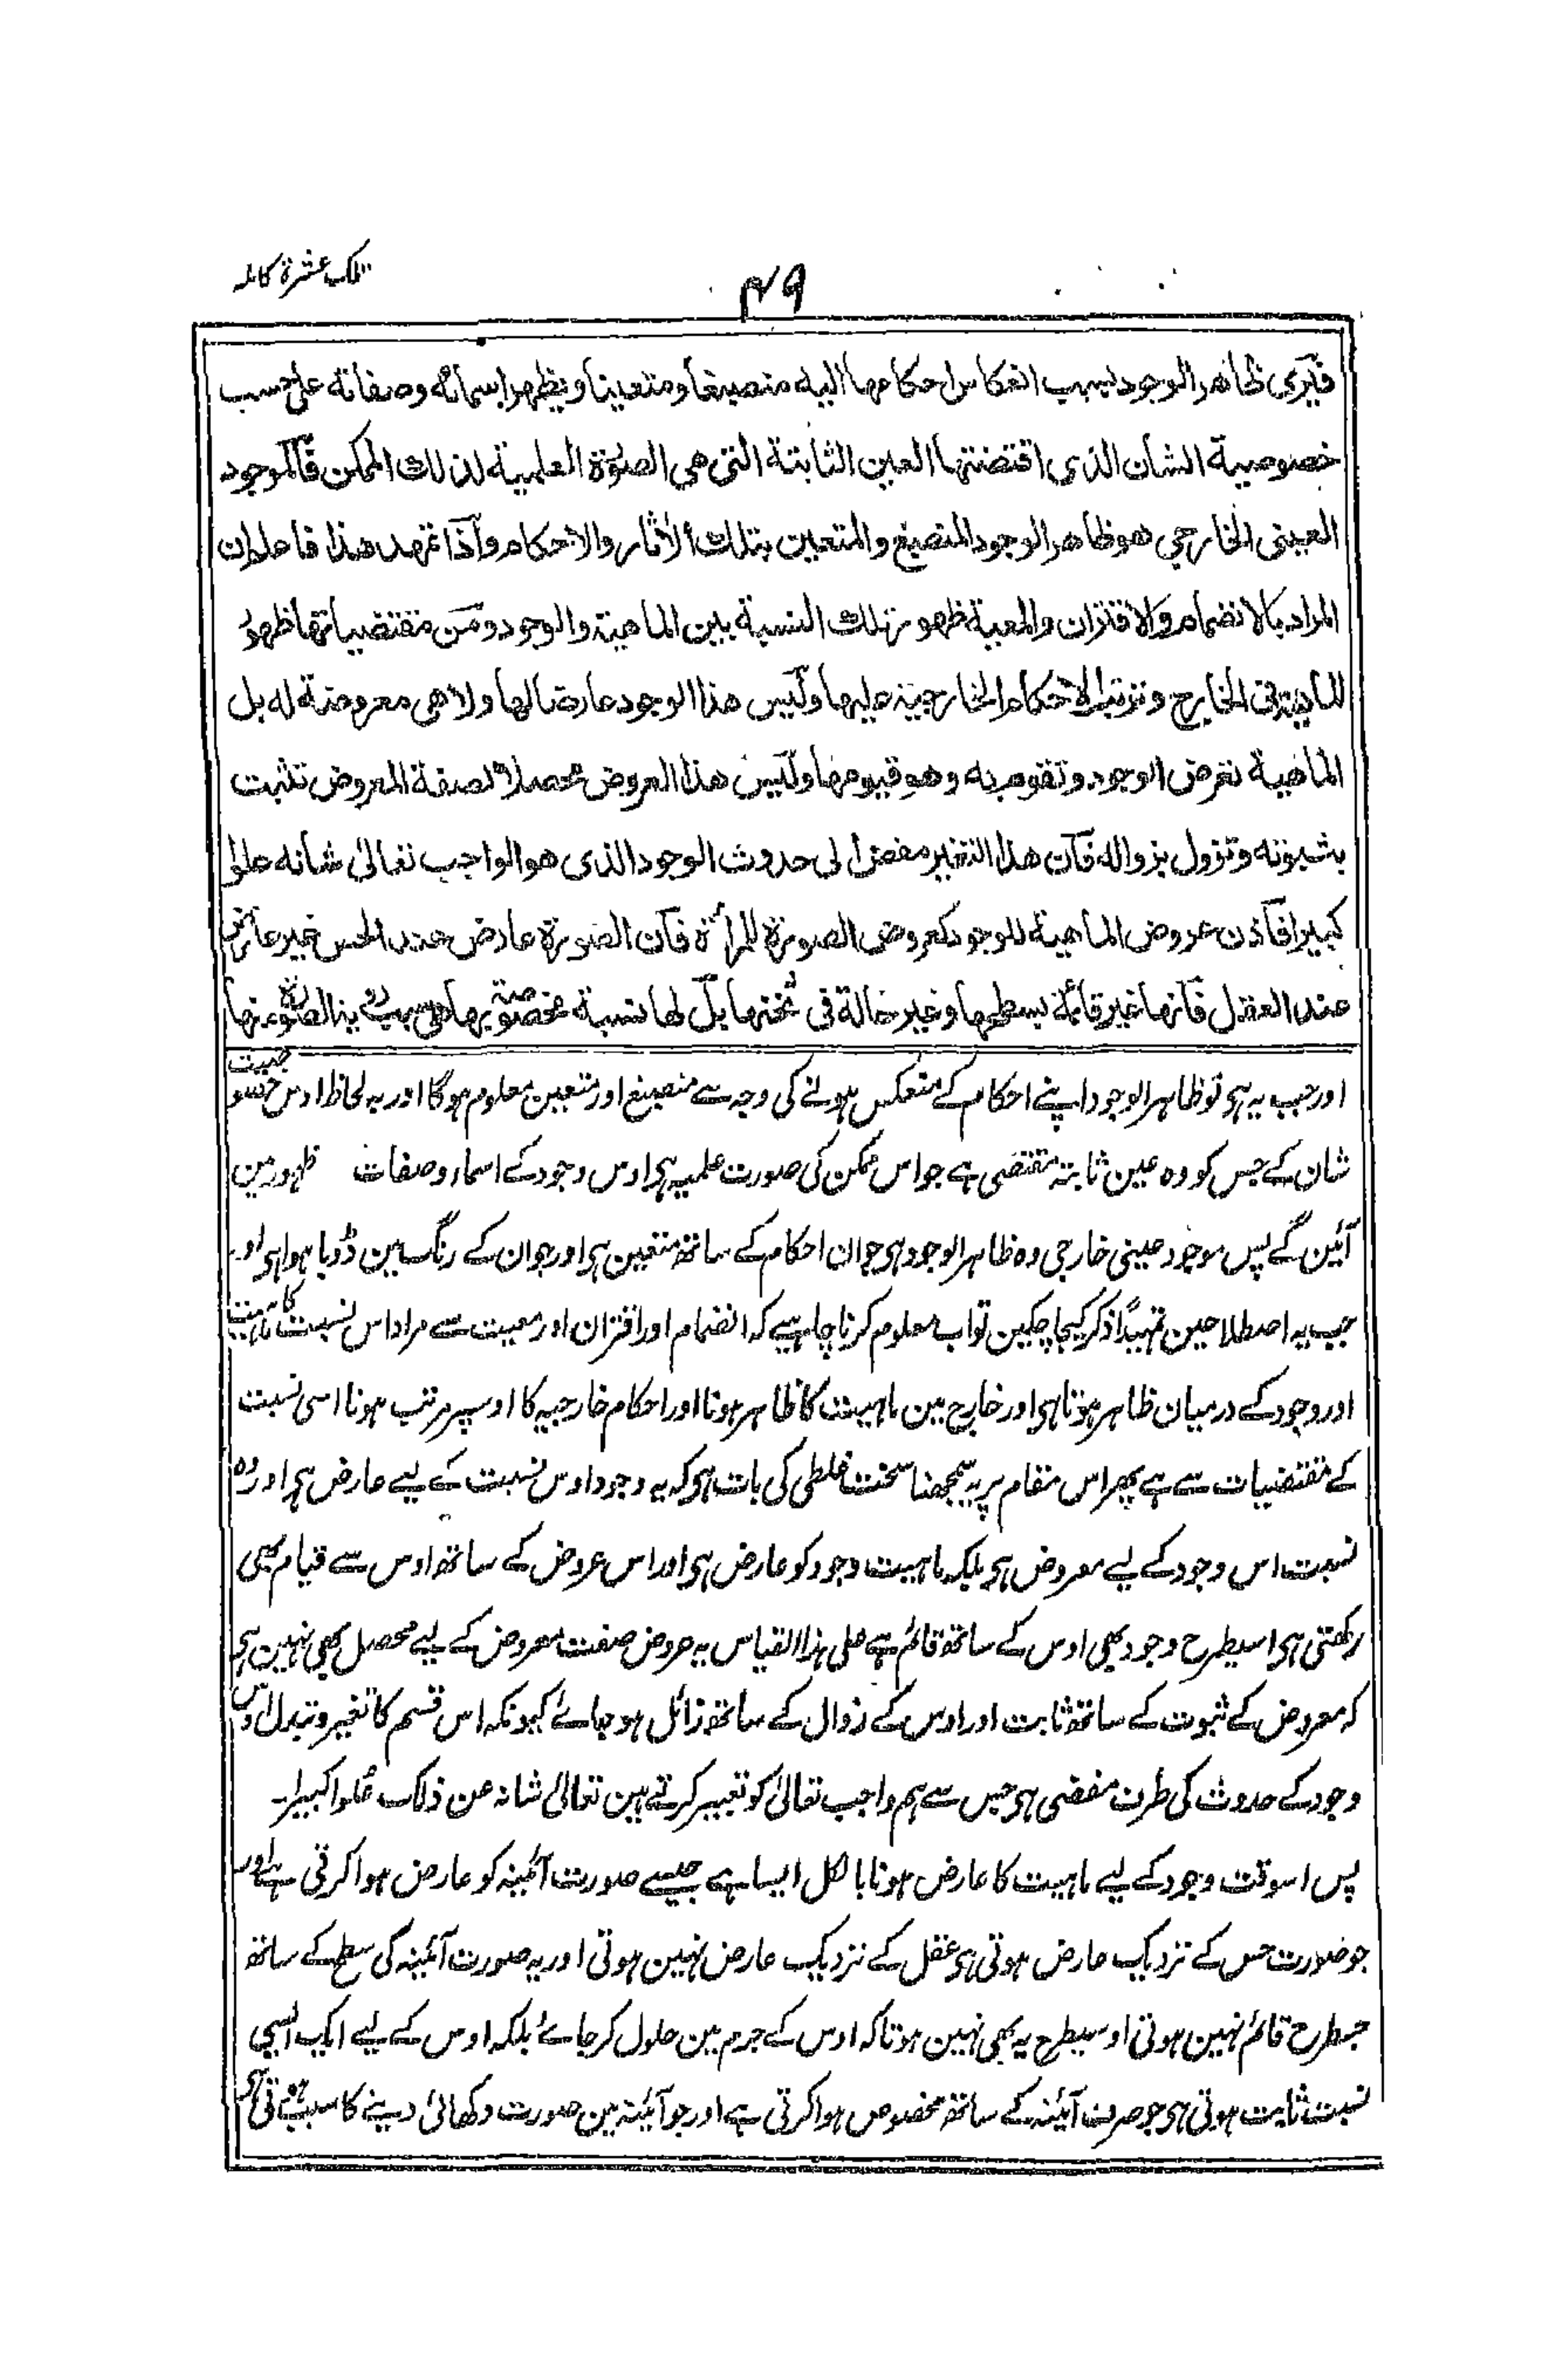 تلک عشرة کاملہ
۴۹
فیری ظاهر الوجود بسبب انعکاس احکامها الیه منصبغا ومتعینا ویظهر اسمائه وصفاته علی حسب
خصوصیة الشان الذی اقتضتها العین الثابتة التی هی الصورة العلمیة لذلك الممکن فالموجود
العینی الخارجی هو ظاهر الوجود المنصبغ والمتعین بتلك الاثار والاحکام واذا تمهد هذا فاعلم ان
المراد بالانضمام والاقتران والمعیة ظهور تلك النسبة بین الماهیة والوجود ومن مقتضیاتها ظهور
للماهیة فی الخارج وترتب الاحکام الخارجیة علیها ولیس هذا الوجود عارضا لها ولا هی معروضة له بل
الماهیة تعرض الوجود وتقوم به وهو قیومها ولیس هذا العروض محصلا لصفة المعروض تثبت
بثبوته وتزول بزواله فان هذا التغیر مفض الی حدوث الوجود الذی هو الواجب تعالی شانه علوا
کبیرا فاذن عروض الماهیة للوجود کعروض الصورة للمرآة فان الصورة عارض عند الحس غیر عارض
عند العقل فانها غیر قائمة بسطحها وغیر حالة فی ثخنها بل لها نسبة مخصوصة بها هی سبب رؤیة الصورة منها
اور جب یہ ہی تو ظاہر الوجود اپنے احکام کے منعکس ہونے کی وجہ سے منصبغ اور متعین معلوم ہوگا اور بہ لحاظ اوس خصوصیت
شان کے جس کو وہ عین ثابتہ مقتضی ہے جو اس ممکن کی صورت علمیہ ہی اوس وجود کے اسماء وصفات ظہور مین
آئین گے پس موجود عینی خارجی وہ ظاہر الوجود ہی جو ان احکام کے ساتھ متعین ہی اور جو ان کے رنگ مین ڈوبا ہوا ہی اور
جب یہ اصطلاحین تمہیداً ذکر کیجا چکین تو اب معلوم کرنا چاہیے کہ انضمام اور اقتران اور معیت سے مراد اس نسبت کا ماہیت
اور وجود کے درمیان ظاہر ہوتا ہی اور خارج مین ماہیت کا ظاہر ہونا اور احکام خارجیہ کا اوسپر مرتب ہونا اسی نسبت
کے مقتضیات سے ہے پھر اس مقام پر یہ سمجھنا سخت غلطی کی بات ہی کہ یہ وجود اوس نسبت کے لیے عارض ہی اور وہ
نسبت اس وجود کے لیے معروض ہی بلکہ ماہیت وجود کو عارض ہی اور اس عروض کے ساتھ اوس سے قیام بھی
رکھتی ہی اسیطرح وجود بھی اوس کے ساتھ قائم ہے علی ہذا القیاس یہ عروض صفت معروض کے لیے محصل بھی نہین ہی
کہ معروض کے ثبوت کے ساتھ ثابت اور اوس کے زوال کے ساتھ زائل ہو جائے کیونکہ اس قسم کا تغیر و تبدل اوس
وجود کے حدوث کی طرف مفضی ہی جس سے ہم واجب تعالیٰ کو تعبیر کرتے ہین تعالیٰ شانہ عن ذلک علوا کبیرا۔
پس اسوقت وجود کے لیے ماہیت کا عارض ہونا بالکل ایسا ہے جیسے صورت آئینہ کو عارض ہوا کرتی ہے اور
جو صورت حس کے نزدیک عارض ہوتی ہی عقل کے نزدیک عارض نہین ہوتی اور یہ صورت آئینہ کی سطح کے ساتھ
جسطرح قائم نہین ہوتی اوسیطرح یہ بھی نہین ہوتا کہ اوس کے جرم مین حلول کر جائے بلکہ اوس کے لیے ایک ایسی
نسبت ثابت ہوتی ہی جو صرف آئینہ کے ساتھ مخصوص ہوا کرتی ہے اور جو آئینہ مین صورت دکھائی دینے کا سبب ہوتی ہی